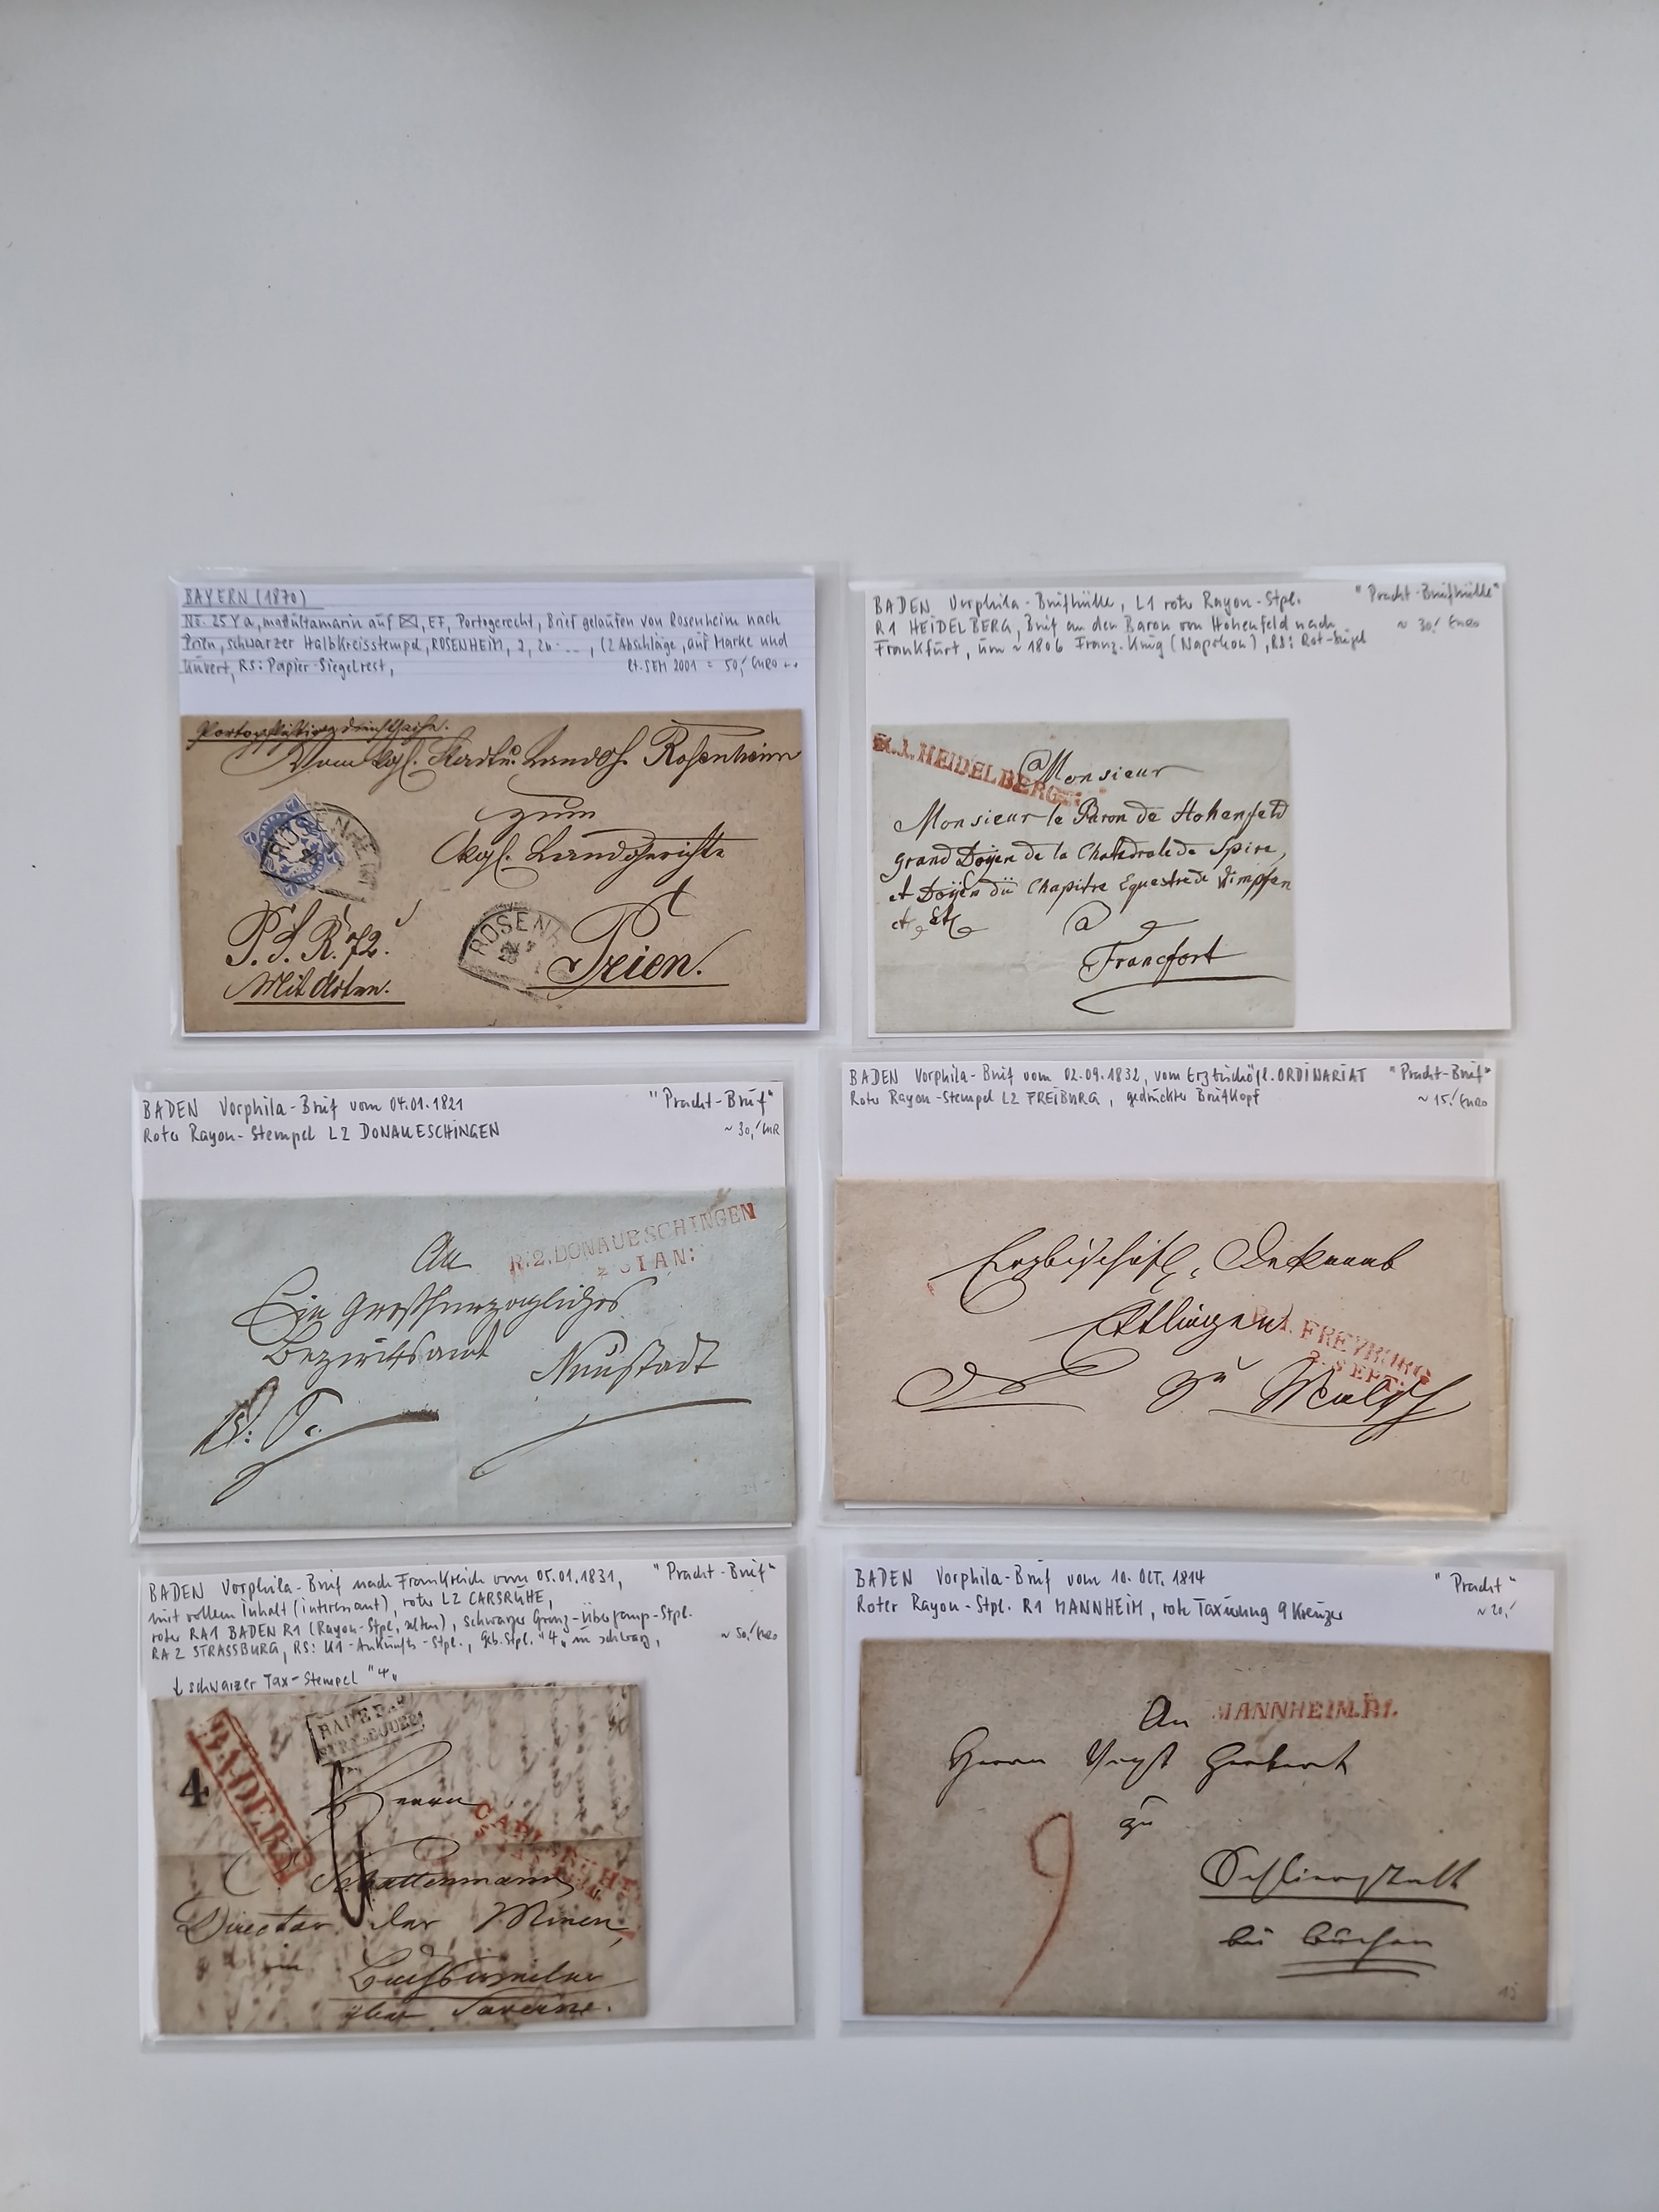 BAYERN (1870)
Nr. 25 Y a, mattultamarin auf ✉, EF, Portogerecht, Brief gelaufen von Rosenheim nach
Prien, schwarzer Halbkreisstempel, ROSENHEIM, 2, 26
(2 Abschläge, auf Marke und
Kuvert, RS: Papier-Siegelrest,
lt. SEM 2001 = 50,- Euro
Vom kgl. Stadt u. Landg. Rosenheim
zum
kgl. Landgerichte
7
ROSENHEIM
P. S. R. 72.
Mit Akten.
ROSENH
Prien.
BADEN Vorphila-Briefhülle, L1 roter Rayon-Stpl.
"Pracht-Briefhülle"
R1 HEIDELBERG, Brief an den Baron von Hohenfeld nach
~ 30,- Euro
Frankfurt, um ~ 1806 Franz. König (Napoleon), RS: Rot-Siegel
R.1.HEIDELBERG
a Monsieur
Monsieur le Baron de Hohenfeld
grand Doÿen de la Chatedrale de Spire,
et Doÿen du Chapitre Equestre de Wimpfen
et, Etc
a
Francfort
BADEN Vorphila-Brief vom 04.01.1821
"Pracht-Brief"
Roter Rayon-Stempel L2 DONAUESCHINGEN
~ 30,- EUR
An
R.2.DONAUESCHINGEN
IAN:
Ein Großherzogliches
Bezirksamt
Neustadt
BADEN Vorphila-Brief vom 02.09.1832, vom Erzbischöfl. ORDINARIAT
"Pracht-Brief"
Roter Rayon-Stempel L2 FREIBURG, gedruckter Briefkopf
~ 15,- Euro
Erzbischöfl. Dekanat
Ettlingen
R.1. FREYBURG
2. SEPT:
zu Malsch
BADEN Vorphila-Brief nach Frankreich vom 05.01.1831,
"Pracht-Brief"
mit vollem Inhalt (interessant), roter L2 CARSRUHE,
roter RA1 BADEN R1 (Rayon-Stpl. selten), schwarzer Grenz-Übergang-Stpl.
RA 2 STRASSBURG, RS: K1-Ankunfts-Stpl., Geb. Stpl. "4" in schwarz,
~ 50,- Euro
↓ schwarzer Tax-Stempel "4"
4
Herrn
Schattenmann
Director der Minen,
in
Buchsweiler
über Saverne.
BADEN Vorphila-Brief vom 10. OCT. 1814
"Pracht"
Roter Rayon-Stpl. R1 MANNHEIM, rote Taxierung 9 Kreuzer
~ 20,-
An
MANNHEIM.R1.
Herrn Vogt
zu
9
bei Buchen